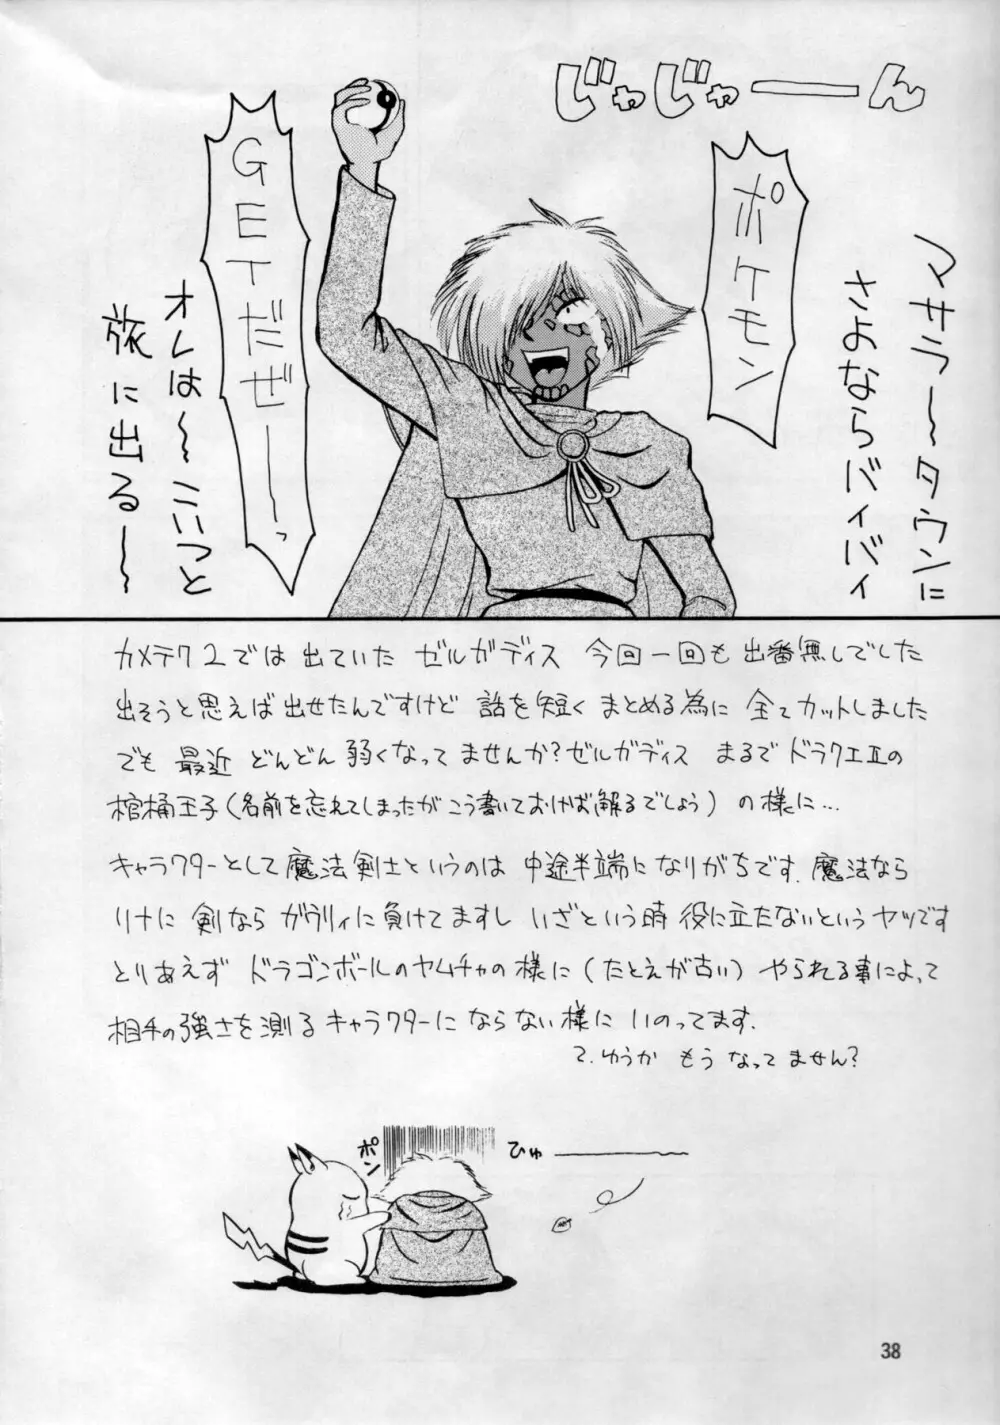 じゃじゃーん
ポケモン
GETだぜーーっ
マサラ～タウンに
さよならバイバイ
オレは～こいつと
旅に出る～
カメテク2では出ていたゼルガディス 今回一回も出番無しでした
出そうと思えば出せたんですけど 話を短くまとめる為に 全てカットしました
でも 最近 どんどん弱くなってませんか?ゼルガディス まるでドラクエⅡの
棺桶王子(名前を忘れてしまったがこう書いておけば解るでしょう)の様に…
キャラクターとして魔法剣士というのは 中途半端になりがちです.魔法なら
リナに 剣なら ガウリィに負けてますし いざという時 役に立たないというヤツです
とりあえず ドラゴンボールのヤムチャの様に(たとえが古い) やられる事によって
相手の強さを測るキャラクターにならない様に いのってます.
て.ゆうか もう なってません?
ポン
ひゅ―――
38